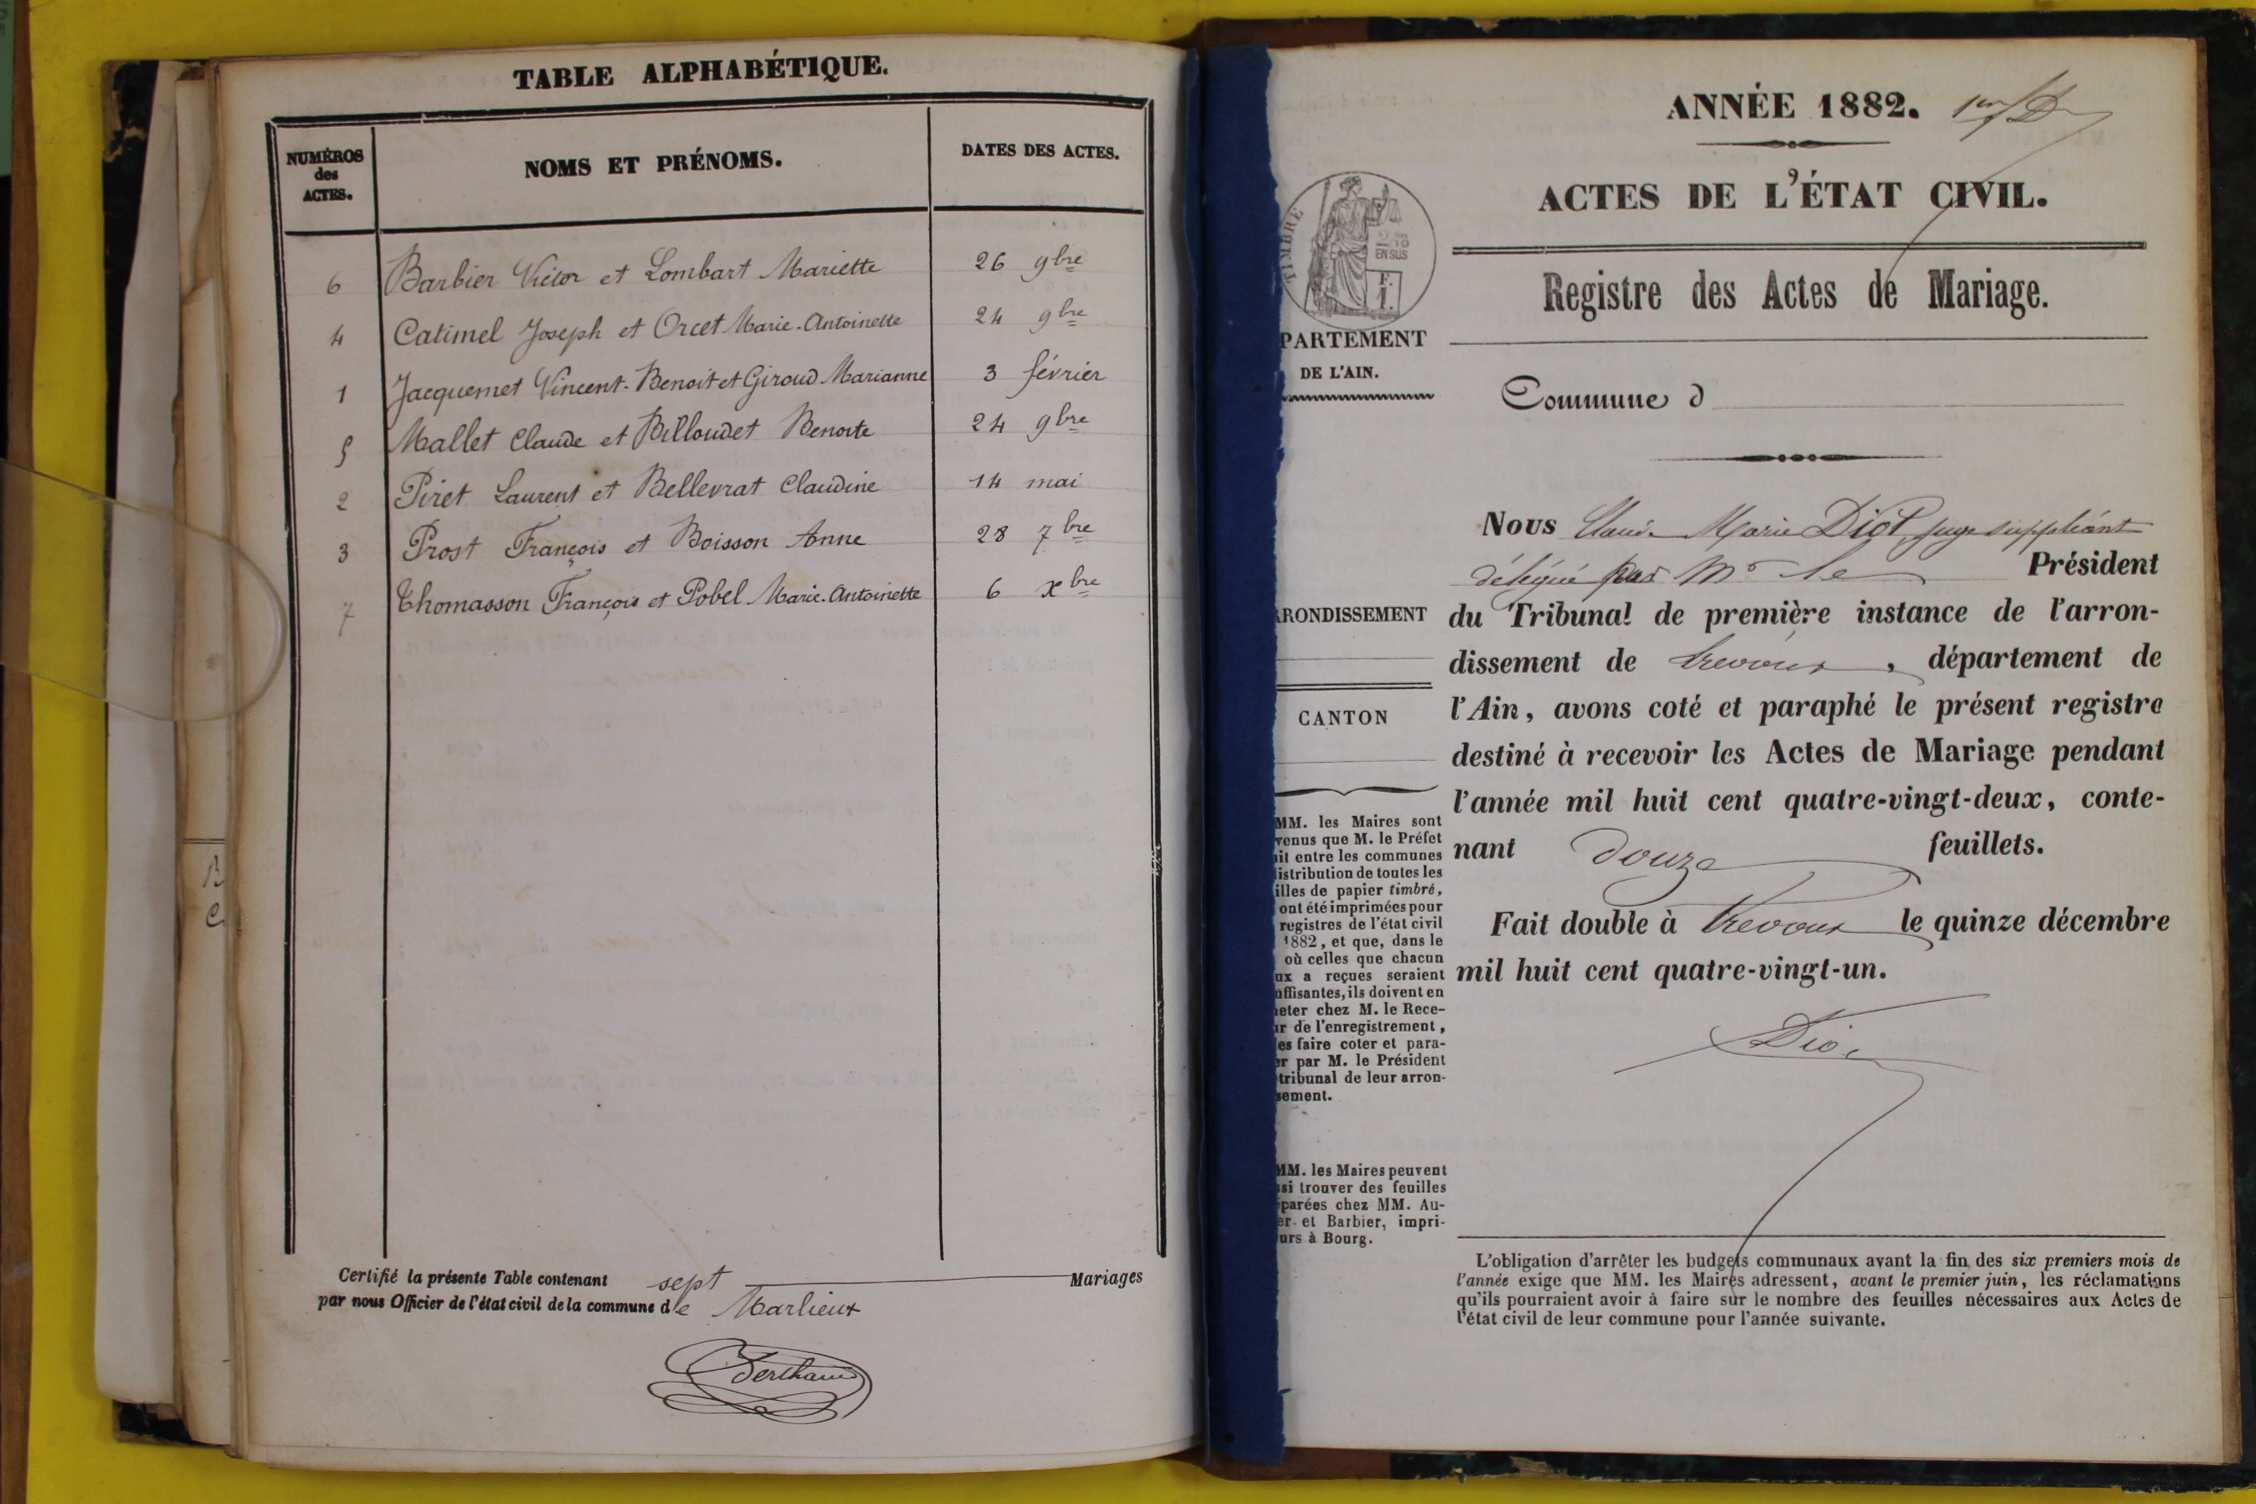 TABLE ALPHABÉTIQUE.
NUMÉROS
des
ACTES.
NOMS ET PRÉNOMS.
DATES DES ACTES.
6 Barbier Victor et Lombart Mariette 26 9bre
4 Catimel Joseph et Orcet Marie-Antoinette 24 9bre
1 Jacquemet Vincent-Benoit et Giroud Marianne 3 février
5 Mallet Claude et Billoudet Benoite 24 9bre
2 Piret Laurent et Bellevrat Claudine 14 mai
3 Prost François et Boisson Anne 28 7bre
7 Thomasson François et Pobel Marie-Antoinette 6 xbre
Certifié la présente Table contenant sept Mariages
par nous Officier de l'état civil de la commune de Marlieux
Berthaud
B
C
ANNÉE 1882. 1er
ACTES DE L'ÉTAT CIVIL.
Registre des Actes de Mariage.
TIMBRE
EN SUS
PARTEMENT
DE L'AIN.
Commune d
Nous Claude Marie Diot, juge suppléant
délégué par Mr le Président
RONDISSEMENT
du Tribunal de première instance de l'arron-
dissement de Trevoux, département de
CANTON
l'Ain, avons coté et paraphé le présent registre
destiné à recevoir les Actes de Mariage pendant
l'année mil huit cent quatre-vingt-deux, conte-
nant douze feuillets.
Fait double à Trevoux le quinze décembre
mil huit cent quatre-vingt-un.
Diot
MM. les Maires sont
venus que M. le Préfet
it entre les communes
istribution de toutes les
illes de papier timbré,
ont été imprimées pour
registres de l'état civil
1882, et que, dans le
où celles que chacun
ux a reçues seraient
uffisantes, ils doivent en
eter chez M. le Rece-
ur de l'enregistrement,
es faire coter et para-
er par M. le Président
tribunal de leur arron-
sement.
MM. les Maires peuvent
si trouver des feuilles
parées chez MM. Au-
er et Barbier, impri-
urs à Bourg.
L'obligation d'arrêter les budgets communaux avant la fin des six premiers mois de
l'année exige que MM. les Maires adressent, avant le premier juin, les réclamations
qu'ils pourraient avoir à faire sur le nombre des feuilles nécessaires aux Actes de
l'état civil de leur commune pour l'année suivante.